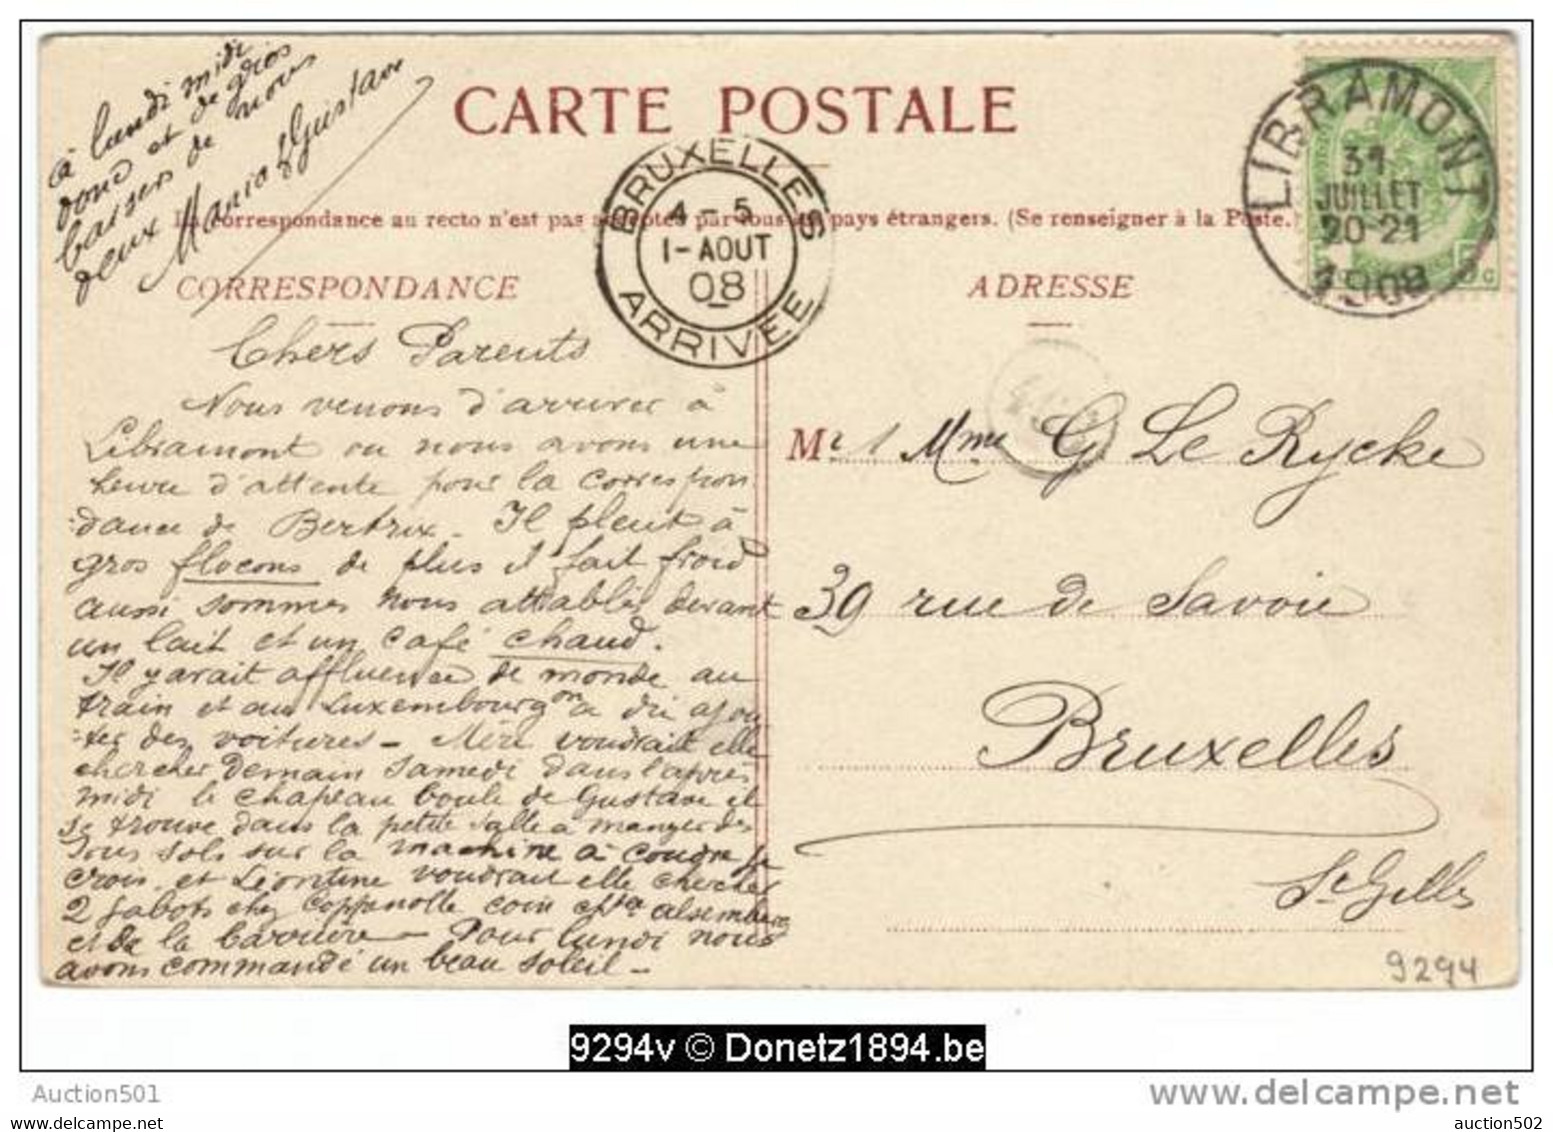 à lundi midi
donc et de gros
baisers de nous
deux Maria & Gustave
CARTE POSTALE
BRUXELLES
4-5
1-AOUT
08
ARRIVÉE
LIBRAMONT
31
JUILLET
20-21
1908
La correspondance au recto n'est pas acceptée par tous les pays étrangers. (Se renseigner à la Poste.)
CORRESPONDANCE
ADRESSE
Chers Parents
Nous venons d'arriver à
Libramont ou nous avons une
heure d'attente pour la correspon
=dance de Bertrix. Il pleut à
gros flocons de plus il fait froid
aussi sommes nous attablés devant
un lait et un café chaud.
Il y avait affluence de monde au
train et au Luxembourg on a du ajou
=ter des voitures - Mère voudrait elle
chercher Demain Samedi dans l'après
midi le chapeau boule de Gustave il
se trouve dans la petite salle a manger des
sous sols sur la machine à coudre je
crois. et Léontine voudrait elle chercher
2 sabots chez Coppenolle coin chée alsemberg
et de la barrière - Pour lundi nous
avons commandé un beau soleil -
Mr & Mme G Le Rycke
39 rue de Savoie
Bruxelles
St Gilles
9294
9294v © Donetz1894.be
Auction501
www.delcampe.net
auction502
auction502